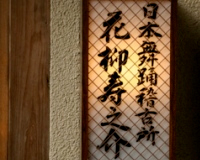 日本舞踊稽古所
花柳寿之介